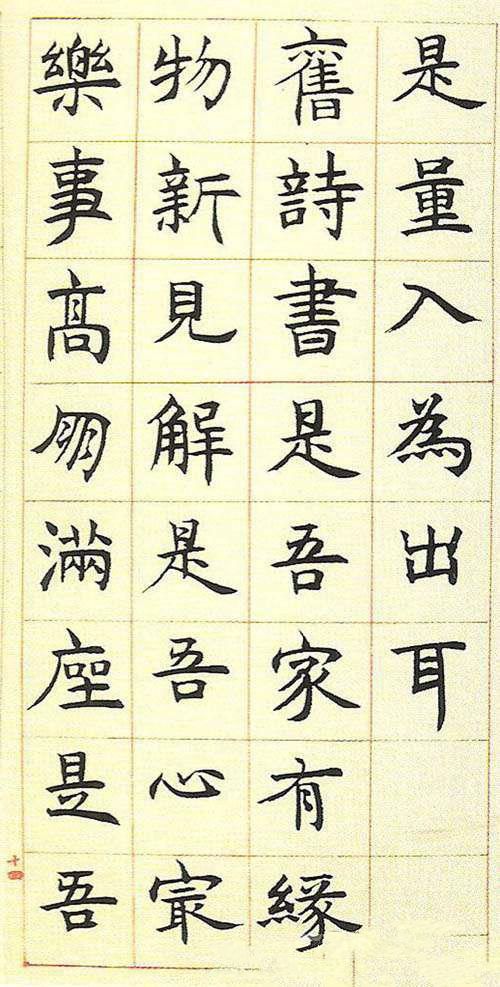 是量入為出耳
舊詩書是吾家有緣
物新見解是吾心㝡
樂事高朙滿座是吾
十四